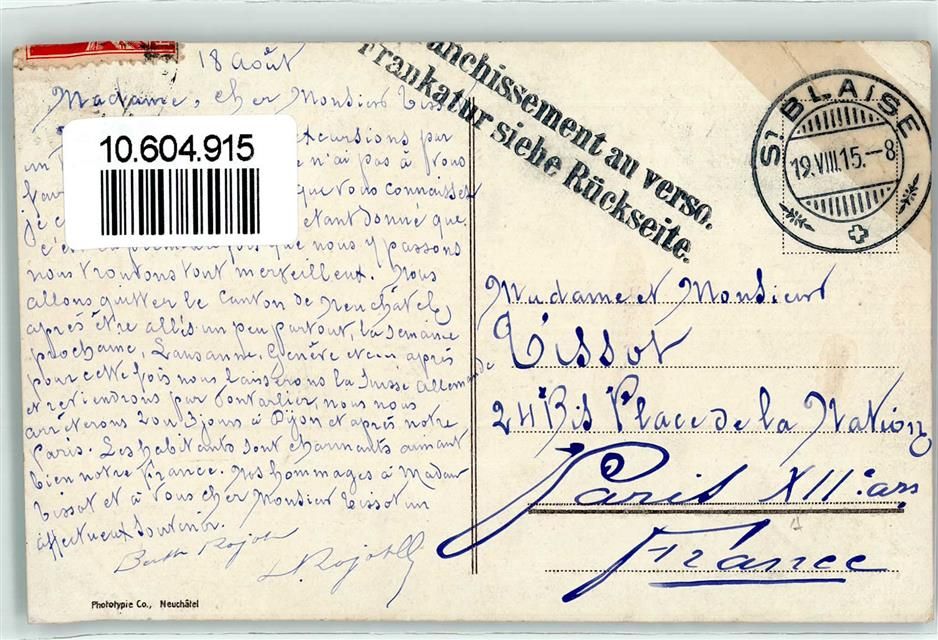 18 Août
Madame, cher Monsieur Tissot
10.604.915
excursions par
un
n'ai pas à vous
que vous connaissez
je
étant donné que
c'est la première fois que nous y passons
nous trouvons tout merveilleux. Nous
allons quitter le Canton de Neuchâtel
après être allés un peu partout, la semaine
prochaine, Lausanne, Genève et
après
pour cette fois nous laisserons la Suisse Allemande
et reviendrons par Pontarlier, nous nous
arrêterons 2 ou 3 jours à Dijon et après notre
Paris. Les habitants sont charmants aimant
bien notre France. Mes hommages à Madame
Tissot et à vous cher Monsieur Tissot un
affectueux souvenir.
Phototypie Co., Neuchâtel
anchissement au verso.
Frankatur siehe Rückseite.
St BLAISE
19.VIII.15.-8
Madame et Monsieur
Tissot
24 Bis Place de la Nation
Paris XII: arr
France